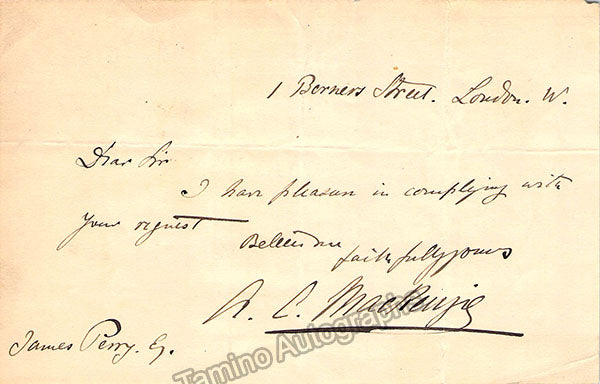 1 Berners Street. London. W.
Dear Sir
I have pleasure in complying with
your request
Believe me
faithfully yours
A. C. Mackenzie
James Perry. Esq.
Tamino Autographs